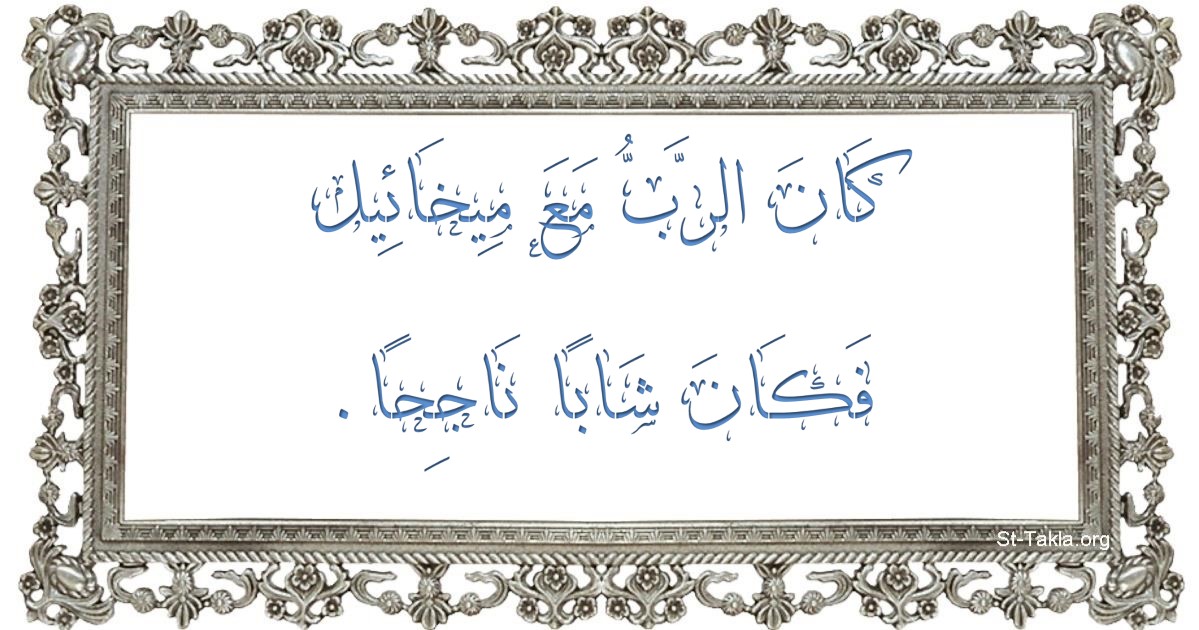 كَانَ الرَّبُّ مَعَ مِيخَائِيل
فَكَانَ شَابًا نَاجِحًا .
St-Takla.org